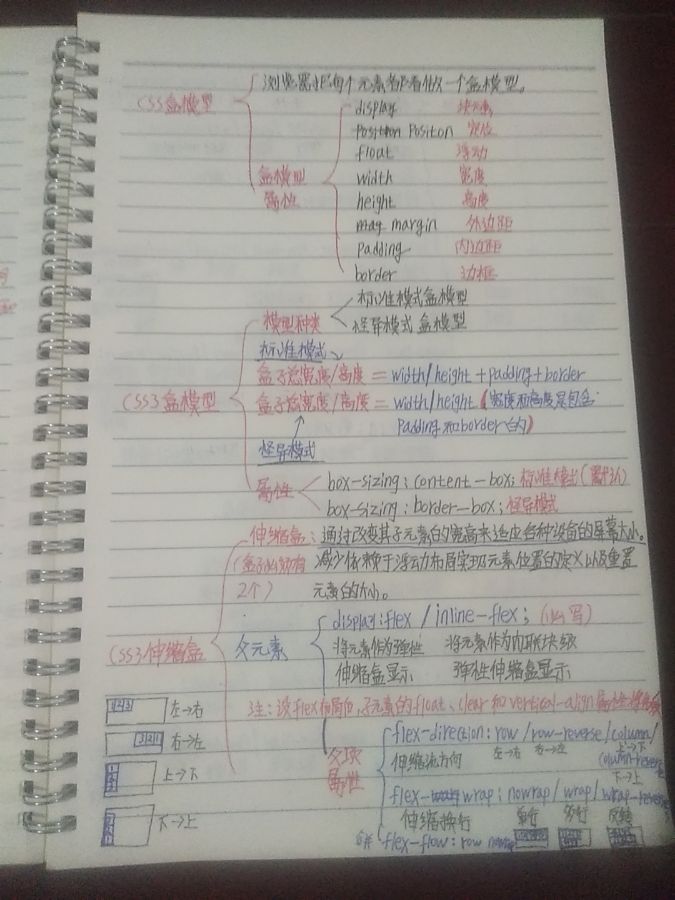 浏览器把每个元素都看做一个盒模型。
CSS盒模型
display 块元素
Position Positon 定位
float 浮动
盒模型 width 宽度
属性 height 高度
mag margin 外边距
padding 内边距
border 边框
模型种类 标准模式盒模型
怪异模式盒模型
标准模式
盒子总宽度/高度 = width/height + padding + border
CSS3盒模型 盒子总宽度/高度 = width/height (宽度和高度是包含
padding和border的)
怪异模式
属性 box-sizing: content-box; 标准模式(默认)
box-sizing: border-box; 怪异模式
伸缩盒: 通过改变其子元素的宽高来适应各种设备的屏幕大小。
(盒子必须有 减少依赖于浮动布局实现元素位置的定义以及重置
2个) 元素的大小。
display:flex / inline-flex; (必写)
CSS3伸缩盒 父元素 将元素作为弹性 将元素作为内联块级
伸缩盒显示 弹性伸缩盒显示
注: 设flex布局后,子元素的float、clear和vertical-align
1 2 3 左→右
flex-direction: row/row-reverse/column/
3 2 1 右→左
父项 伸缩流方向 左→右 右→左 上→下
属性 column-reverse
上→下 下→上
flex-wrap: nowrap/wrap/wrap-reverse
下→上 伸缩换行
flex-flow: row